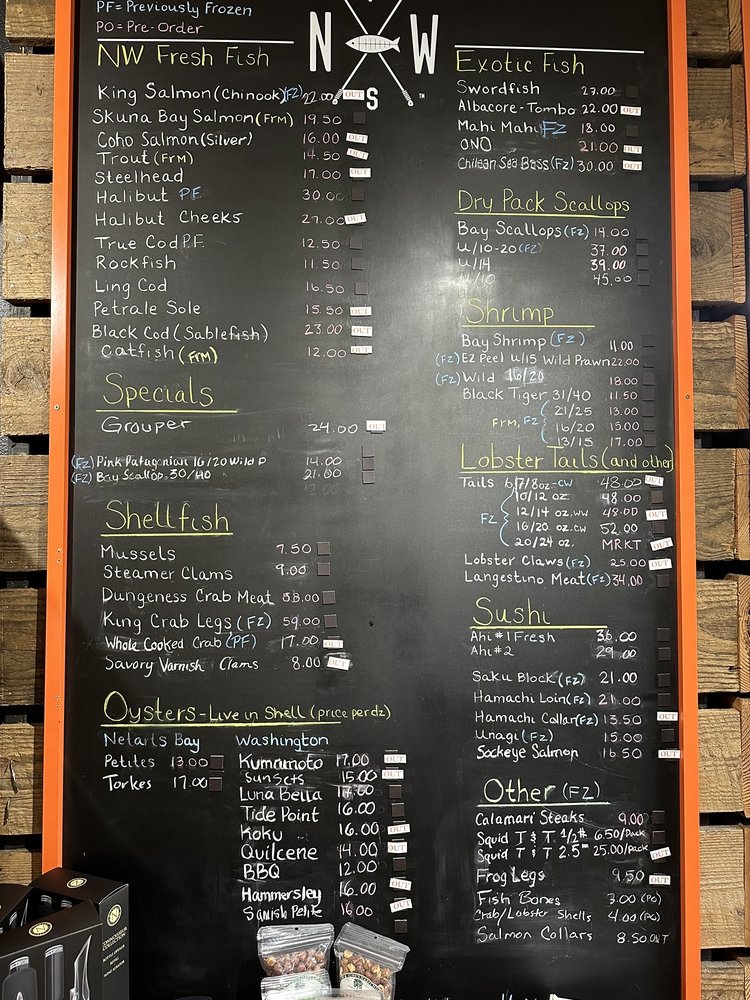 PF = Previously Frozen
PO = Pre-Order
N W
S
TM
NW Fresh Fish
King Salmon (Chinook) (FZ) 22.00 OUT
Skuna Bay Salmon (Frm) 19.50
Coho Salmon (Silver) 16.00 OUT
Trout (Frm) 14.50 OUT
Steelhead 17.00 OUT
Halibut PF 30.00
Halibut Cheeks 27.00 OUT
True Cod P.F. 12.50
Rockfish 11.50
Ling Cod 16.50
Petrale Sole 15.50 OUT
Black Cod (Sablefish) 23.00 OUT
Catfish (Frm) 12.00 OUT
Specials
Grouper 24.00 OUT
(FZ) Pink Patagonian 16/20 Wild P 14.00
(FZ) Bay Scallop 30/40 21.00
Shellfish
Mussels 7.50
Steamer Clams 9.00
Dungeness Crab Meat 58.00
King Crab Legs (FZ) 59.00
Whole Cooked Crab (PF) 17.00 OUT
Savory Varnish Clams 8.00 OUT
Oysters - Live in Shell (price per dz)
Netarts Bay
Petites 13.00
Torkes 17.00
Washington
Kumamoto 17.00 OUT
Sunsets 15.00 OUT
Luna Bella 17.00
Tide Point 16.00
Koku 16.00 OUT
Quilcene 14.00 OUT
BBQ 12.00
Hammersley 16.00 OUT
Squish Petite 16.00 OUT
Exotic Fish
Swordfish 27.00
Albacore-Tombo 22.00 OUT
Mahi Mahi FZ 18.00
ONO 21.00 OUT
Chilean Sea Bass (FZ) 30.00 OUT
Dry Pack Scallops
Bay Scallops (FZ) 14.00
U/10-20 (FZ) 37.00
U/14 39.00
U/10 45.00
Shrimp
Bay Shrimp (FZ) 11.00
(FZ) EZ Peel U/15 Wild Prawn 22.00
(FZ) Wild 16/20 18.00
Black Tiger 31/40 11.50
Frm, FZ { 21/25 13.00
16/20 15.00
13/15 17.00
Lobster Tails (and other)
Tails 6/7/8 oz-CW 48.00 OUT
FZ { 10/12 oz. 48.00
12/14 oz. WW 48.00 OUT
16/20 oz. CW 52.00
20/24 oz. MRKT OUT
Lobster Claws (FZ) 25.00 OUT
Langestino Meat (FZ) 34.00
Sushi
Ahi #1 Fresh 36.00
Ahi #2 29.00
Saku Block (FZ) 21.00
Hamachi Loin (FZ) 21.00
Hamachi Collar (FZ) 13.50 OUT
Unagi (FZ) 15.00
Sockeye Salmon 16.50 OUT
Other (FZ)
Calamari Steaks 9.00
Squid T & T 1/2# 6.50/Pack
Squid T & T 2.5# 25.00/pack OUT
Frog Legs 9.50 OUT
Fish Bones 3.00 (PO)
Crab/Lobster Shells 4.00 (PO)
Salmon Collars 8.50 OUT